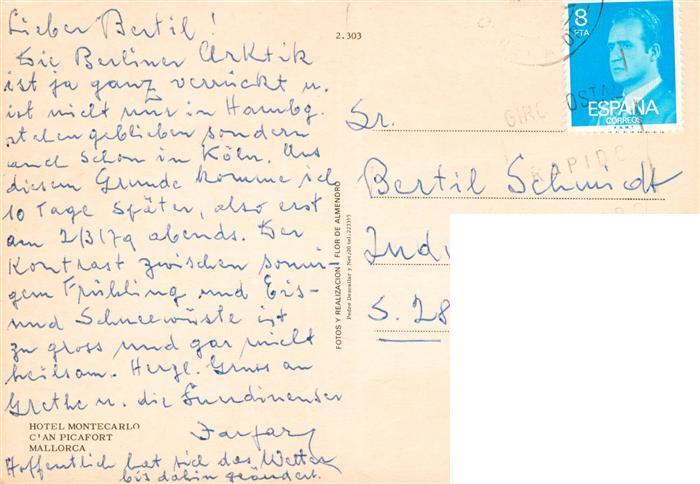 Lieber Bertil!
Die Berliner Arktik
ist ja ganz verrückt u.
ist nicht nur in Hambg.
stehengeblieben sondern
auch schon in Köln. Aus
diesem Grunde komme ich
10 Tage später, also erst
am 2/3/79 abends. Der
Kontrast zwischen sonni-
gem Frühling und Eis-
und Schneewüste ist
zu gross und gar nicht
heilsam. Herzl. Gruss an
Grethe u. die
HOTEL MONTECARLO
C'AN PICAFORT
MALLORCA
Hoffentlich hat sich das Wetter
bis dahin geändert.
2.303
FOTOS Y REALIZACION: FLOR DE ALMENDRO
8
PTA
ESPAÑA
CORREOS
F.N.M.T.
GIRO POSTAL
RAPIDO
Sr.
Bertil Schmidt
Ind
S. 28